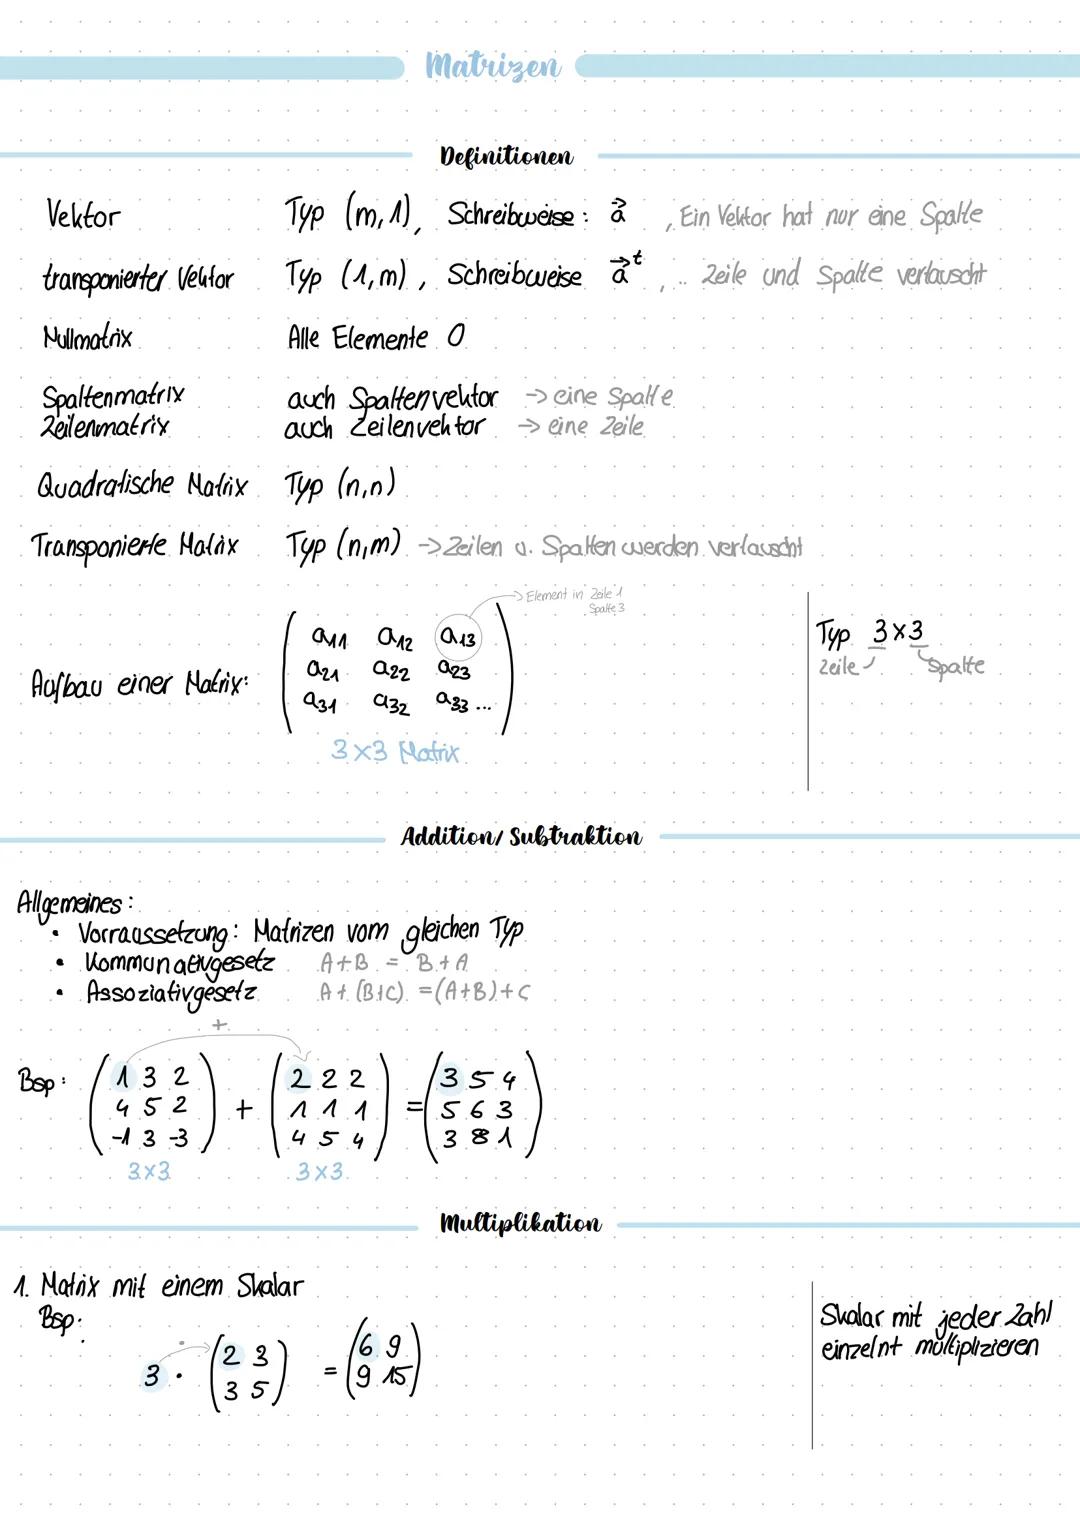 Matrizen
Definitionen
Vektor Typ (m,1), Schreibweise: a⃗ , Ein Vektor hat nur eine Spalte
transponierter Vektor Typ (1,m), Schreibweise a⃗ᵗ , .. Zeile und Spalte vertauscht
Nullmatrix Alle Elemente 0
Spaltenmatrix auch Spaltenvektor → eine Spalte
Zeilenmatrix auch Zeilenvektor → eine Zeile
Quadratische Matrix Typ (n,n)
Transponierte Matrix Typ (n,m) → Zeilen u. Spalten werden vertauscht
→ Element in Zeile 1
Spalte 3
a11 a12 a13
Aufbau einer Matrix: a21 a22 a23
a31 a32 a33 ...
3×3 Matrix
Typ 3×3
Zeile Spalte
Addition/Subtraktion
Allgemeines:
• Vorraussetzung: Matrizen vom gleichen Typ
• Kommunativgesetz A+B = B+A
• Assoziativgesetz A+(B+C) = (A+B)+C
+
Bsp: (1 3 2) (2 2 2) (3 5 4)
(4 5 2) + (1 1 1) = (5 6 3)
(-1 3 -3) (4 5 4) (3 8 1)
3×3 3×3
Multiplikation
1. Matrix mit einem Skalar
Bsp:
3 · (2 3) = (6 9)
(3 5) (9 15)
Skalar mit jeder Zahl
einzelnt multiplizieren